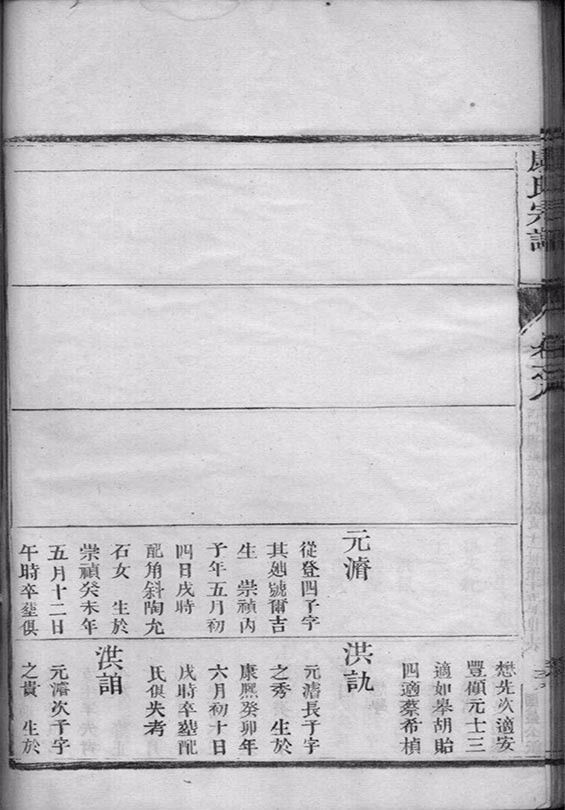 氏宗譜
元濬
從登四子字
其號爾吉
生 崇禎丙
子年五月初
四日戌時
配角斜陶允
石女 生於
崇禎癸未年
五月十二日
午時卒塟俱
懋先次適安
豐傾元士三
適如皋胡貽
四適蔡希楨
洪訙
元濬長子字
之秀 生於
康熙癸卯年
六月初十日
戌時卒塟配
氏俱失考
洪
元濬次子字
之貴 生於